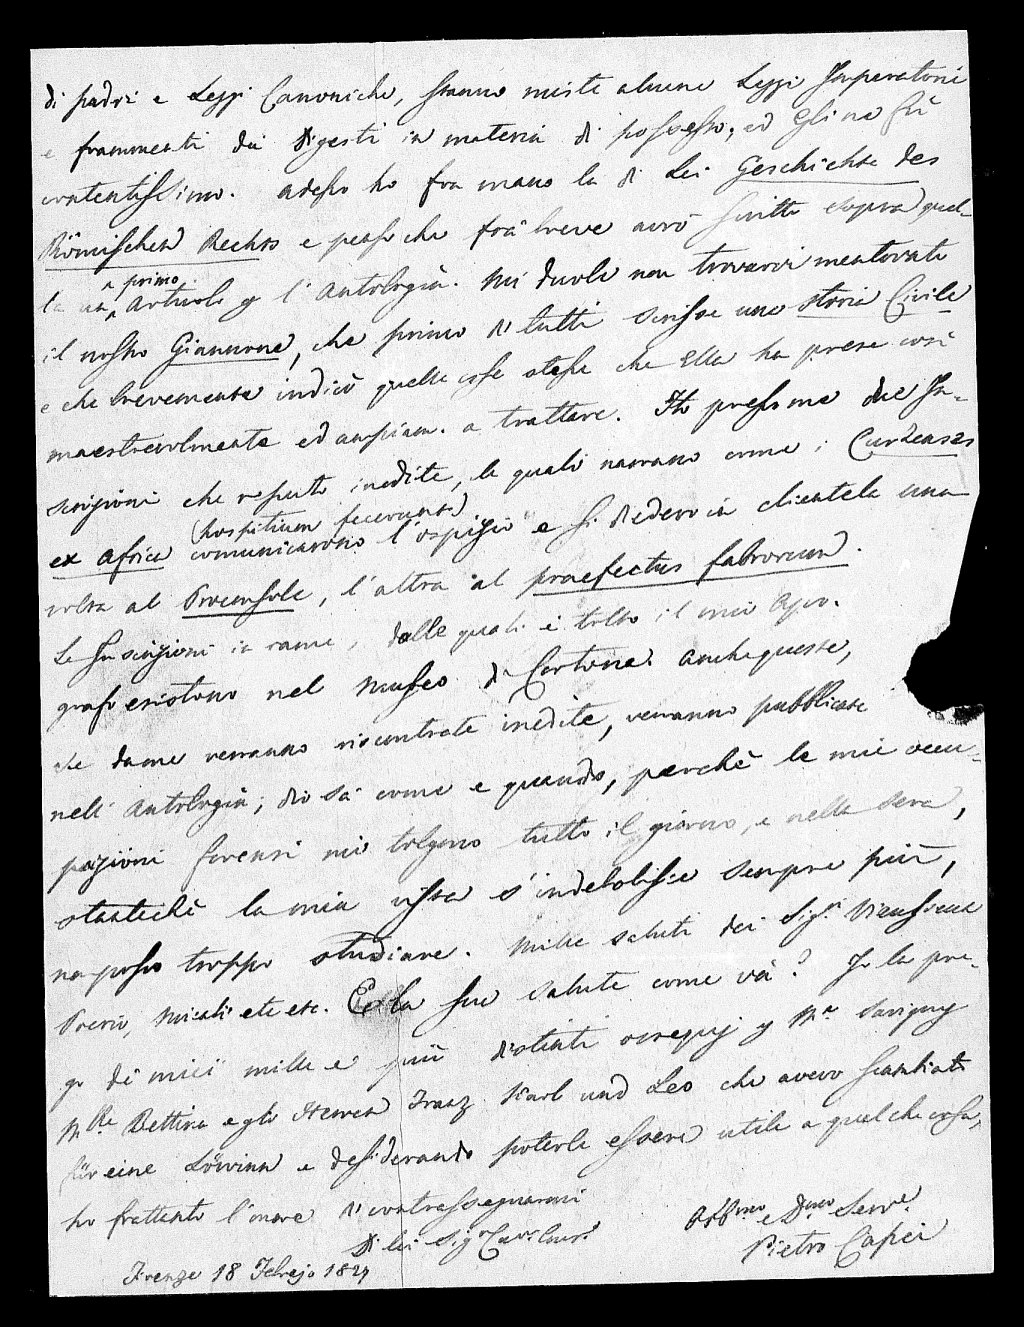 di padri e Leggi Canoniche, stanno miste alcune Leggi Imperatorie
e frammenti dei Digesti in materia di possesso; ed Egli ne fù
contentissimo. Adesso ho fra mano la di Lei Geschichte des
Römischen Rechts e penso che frà breve avrò scritto sopra quel-
la un primo Articolo p l'Antologia. Mi duole non trovarvi mentovato
il nostro Giannone, che primo di tutti scrisse una storia Civile
e che brevemente indicò quelle cose stesse che Ella ha prese così
maestrevolmente ed ampiam. a trattare. Ho presso me due In-
scrizioni che reputo inedite, le quali narrano come i Curzenses
ex Africa (hospitium fecerunt) comunicarono l'ospizio e si diedero in clientela una
volta al Proconsole, l'altra al praefectus fabrorum.
Le Inscrizioni in rame, dalle quali è tolto il mio Apo-
grafo esistono nel Museo di Cortona. Anche queste,
se da me verranno riscontrate inedite, verranno pubblicate
nell' Antologia; Dio sà come e quando, perchè le mie occu-
pazioni forensi mi tolgono tutto il giorno, e nella sera,
stantechè la mia vista s'indebolisce sempre più,
no posso troppo studiare. Mille saluti dei Sigi. Vieusseux
Poerio, Micali etc etc. E la sua salute come và? Io la pre-
go di miei mille e più distinti ossequj p Mr Savigny
Mlle Bettina e gli Herren Franz Karl und Leo che avevo scambiato
für eine Löwinn e desiderando poterle essere utile a qualche cosa,
ho frattanto l'onore di contrassegnarmi
Di lei Sigr Cavr
Obbmo e Dmo Serve
Pietro Capei
Firenze 18 Febrajo 1829